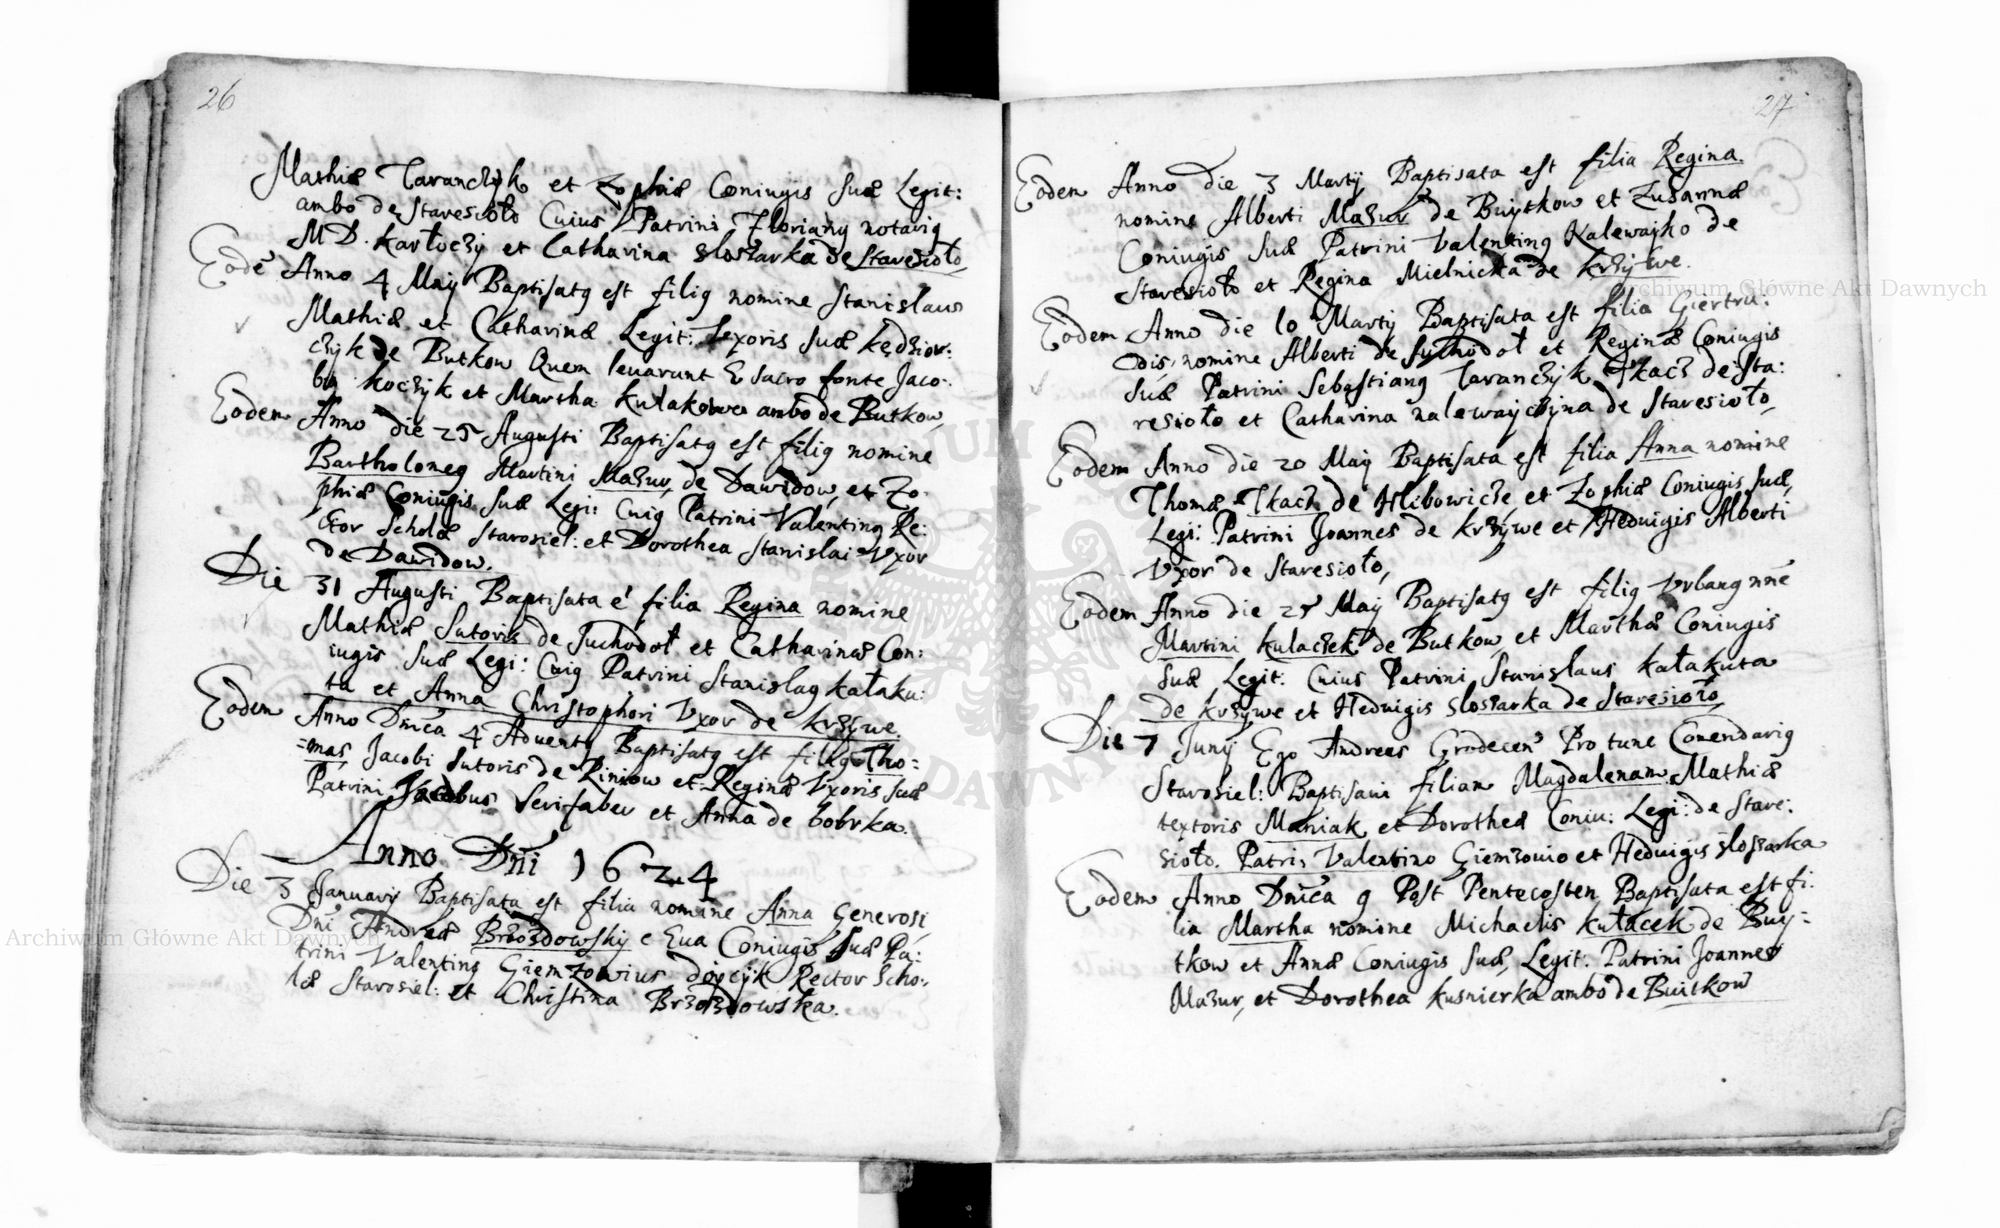 26
Mathiæ Taranczyk et Zophiæ Coniugis suæ Legit:
ambo de Staresioło Cuius Patrini Floriang notarig
M D. Karłoczy et Catharina slosarka de Staresioło,
Eodē Anno 4 Maij Baptisatg est filig nomine Stanislaus
Mathiæ et Catharinæ Legit: Vxoris suæ Kędzior:
czyk de Butkow Quem leuarunt E sacro fonte Jaco:
bg Koczyk et Martha Kułakowa ambo de Butkow,
Eodem Anno die 25 Augusti Baptisatg est filig nomine
Bartholomeg Martini Mazur, de Dawidow, et Zo:
phiæ Coniugis suæ Legi: Cuig Patrini Valenting Re:
ctor Scholæ Starosiel: et Dorothea Stanislai Vxor
de Dawidow.
Die 31 Augusti Baptisata ē filia Regina nomine
Mathiæ Sutoris de Suchodoł et Catharinæ Con:
iugis suæ Legi: Cuig Patrini Stanislag kałaku:
ta et Anna Christophori Vxor de krzywe.
Eodem Anno Dn̄ica 4 Aduentg Baptisatg est filig Tho=
=mas, Jacobi Sutoris de Riniow et Reginæ Vxoris suæ
Patrini Jacobus Serifaber et Anna de bobrka.
Anno Dn̄i 1624
Die 3 Januarij Baptisata est filia nomine Anna Generosi
Dn̄i Andreæ Brzozdowskij e Eua Coniugis suæ Pa:
trini Valenting Giemzowius Rector Scho:
læ Starosiel: et Christina Brzozdowska.
27
Eodem Anno die 3 Martij Baptisata est filia Regina.
nomine Alberti Mazur de Buytkow et Zusannæ
Coniugis suæ Patrini Valenting Nalewayko de
Staresioło et Regina Mielnicka de krzywe.
Eodem Anno die 10 Martij Baptisata est filia Giertru:
dis, nomine Alberti de Suchodoł et Reginæ Coniugis
suæ Patrini Sebastiang Taranczyk Tkacz de Sta:
resioło et Catharina nalewaijczyna de Staresioło,
Eodem Anno die 20 Maij Baptisata est filia Anna nomine
Thomæ Tkacz de Hlibowicze et Zophiæ Coniugis suæ,
Legi: Patrini Joannes de krzywe et Heduigis Alberti
Vxor de Staresioło,
Eodem Anno die 25 Maij Baptisatg est filig Vrbang nn̄e
Martini kulaczek de Butkow, et Marthæ Coniugis
suæ Legit: Cuius Patrini Stanislaus kałakuta
de krzywe et Heduigis slosarka de Staresioło,
Die 7 Junij Ego Andreas Grodecen̄ Pro tunc Comendarig
Starosiel: Baptisaui filiam Magdalenam Mathiæ
textoris Maniak et Dorotheæ Coniu: Legi: de Stare:
sioło. Patri, Valentino Giemzouio et Heduigis slosarka
Eodem Anno Dn̄ica 9 Post Pentecosten Baptisata est fi:
lia Martha nomine Michaelis kułacek de Buy=
tkow et Annæ Coniugis suæ, Legit: Patrini Joannes
Mazur, et Dorothea Kusnierka ambo de Buitkow